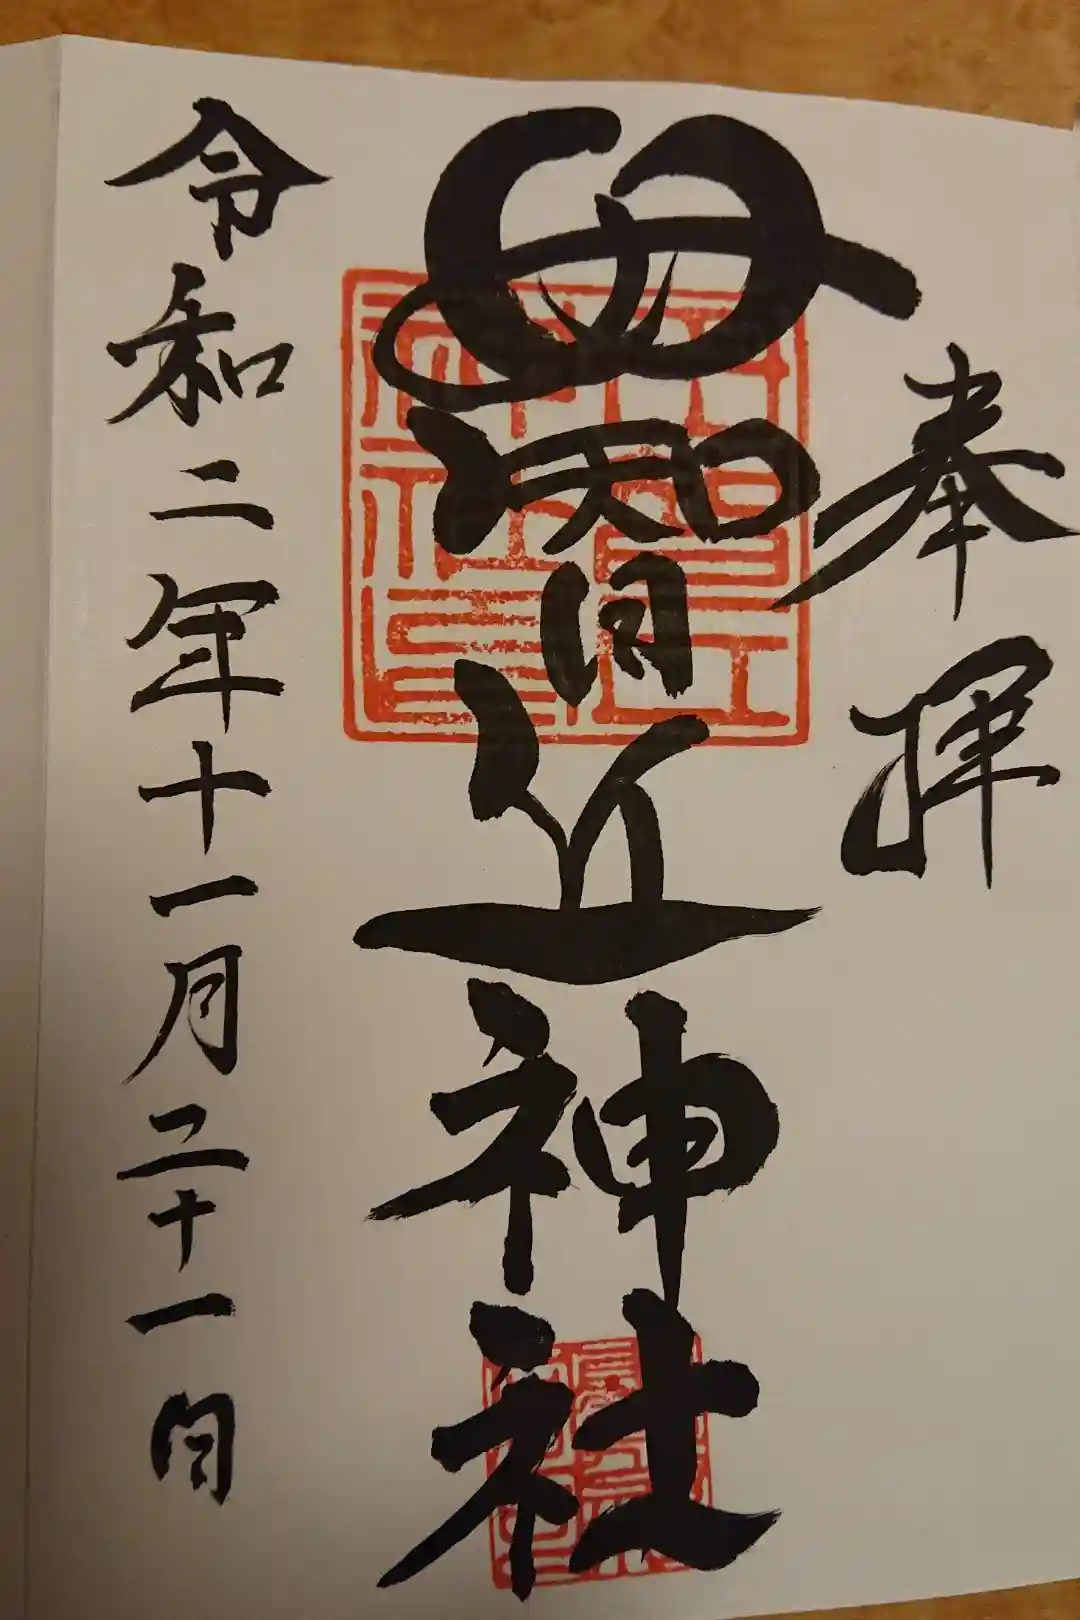 奉拝
母智丘神社
令和二年十一月二十一日